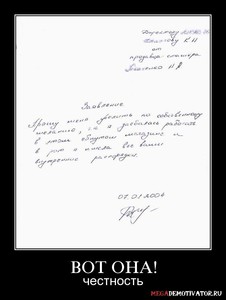 Директору
К.Н.
от
продавца-кассира
Н.В
Заявление
Прошу меня уволить по собственному
желанию, т.к я заебалась работать
в вашем ебучем магазине и
в рот я имела все ваши
внутренние распорядки.
07.01.2004
ВОТ ОНА!
честность
MEGADEMOTIVATOR.RU